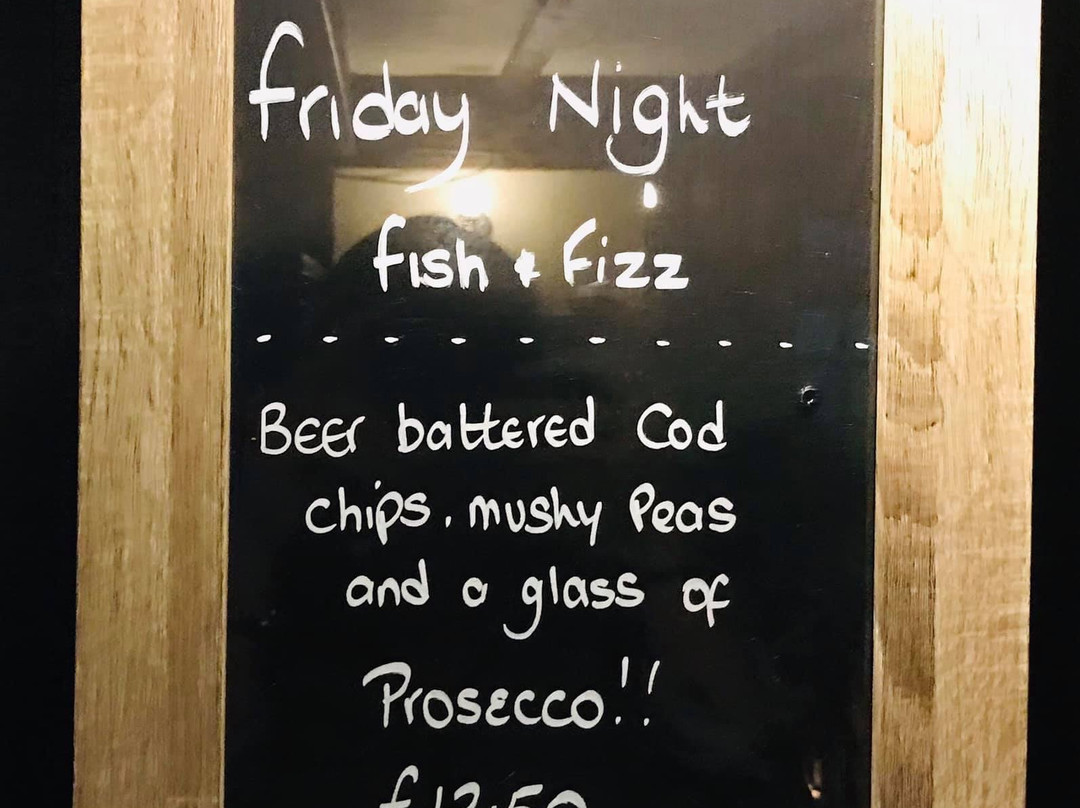 friday Night
fish & fizz
Beer battered Cod
chips, mushy Peas
and a glass of
Prosecco!!
£12.50